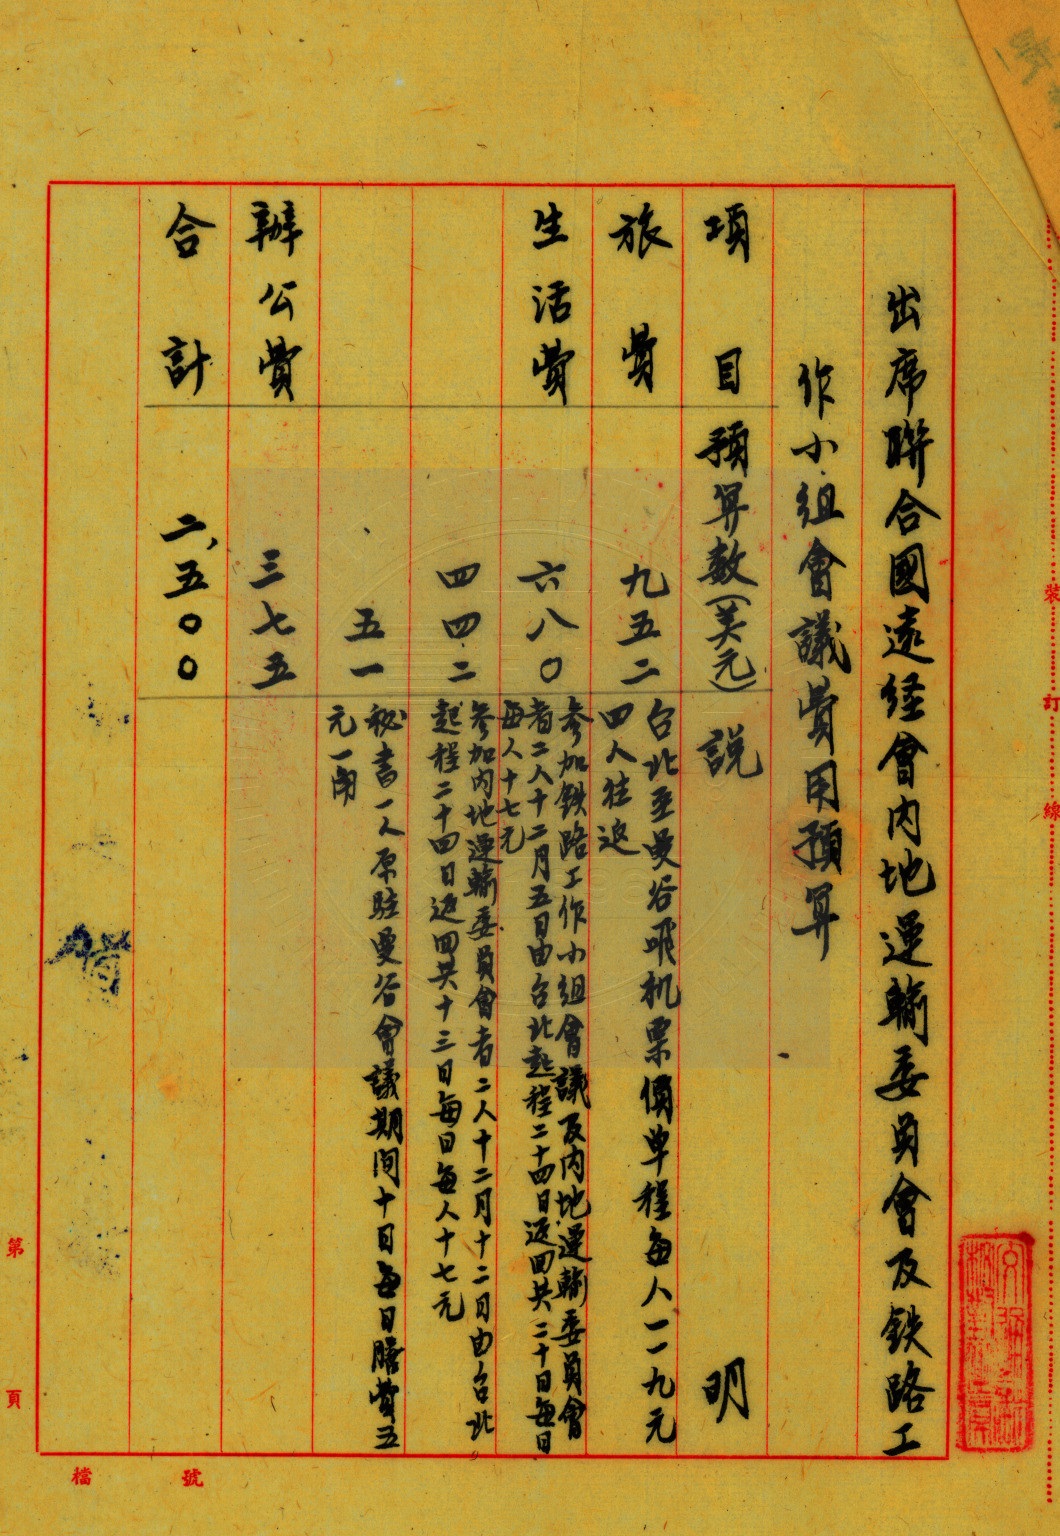 出席聯合國遠經會內地運輸委員會及鉄路工
作小組會議費用預算
項目 預算數(美元) 説明
旅費 九五二 台北至曼谷飛机票價单程每人一一九元
四人往返
生活費 六八〇 參加鉄路工作小組會議及內地運輸委員會
者二人十二月五日由台北起程二十四日返回共二十日每日
每人十七元
四四二 參加內地運輸委員會者二人十二月十二日由台北
起程二十四日返回共十三日每日每人十七元
五一 秘書一人原駐曼谷會議期间十日每日膳費五
元一角
辦公費 三七五
合計 二,五〇〇
裝
訂
線
第
頁
檔號